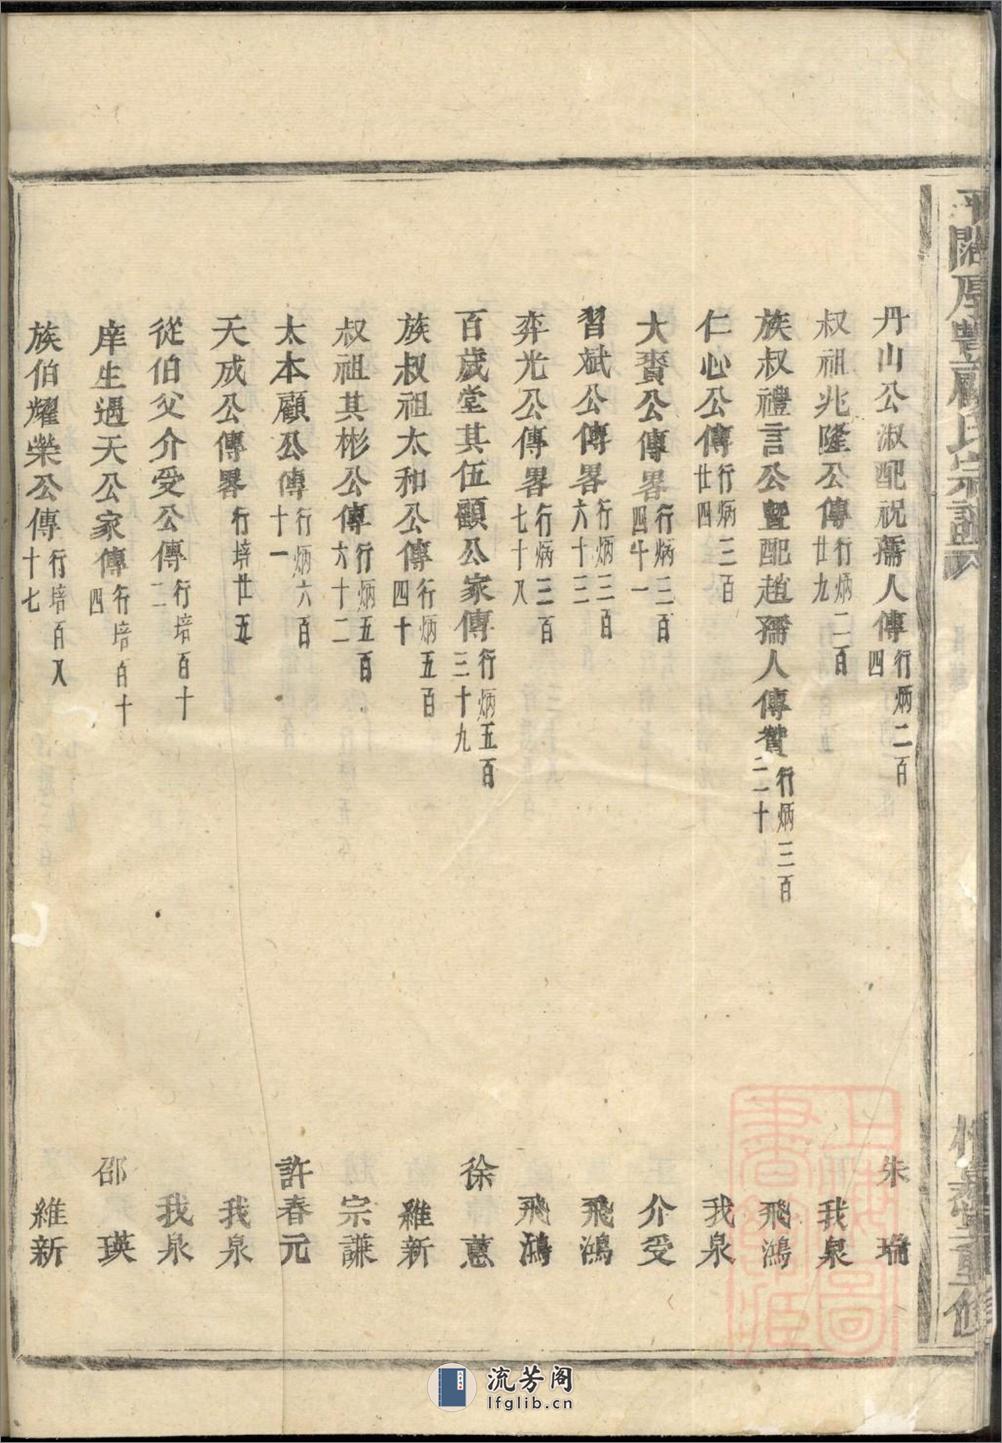 丹山公淑配祝孺人傳 行炳二百四 朱瑞
叔祖兆隆公傳 行炳二百廿九 我泉
族叔禮言公暨配趙孺人傳贊 行炳三百二十 飛鴻
仁心公傳 行炳三百廿四 我泉
大賚公傳畧 行炳三百四十一 介受
習斌公傳畧 行炳三百六十三 飛鴻
弈光公傳畧 行炳三百七十八 飛鴻
百歲堂其伍顧公家傳 行炳五百三十九 徐蕙
族叔祖太和公傳 行炳五百四十 維新
叔祖其彬公傳 行炳五百六十二 宗謙
太本顧公傳 行炳六百十一 許春元
天成公傳畧 行培廿五 我泉
從伯父介受公傳 行培百十二 我泉
庠生遇天公家傳 行培百十四 邵瑛
族伯耀榮公傳 行培百八十七 維新
流芳阁
lfglib.cn